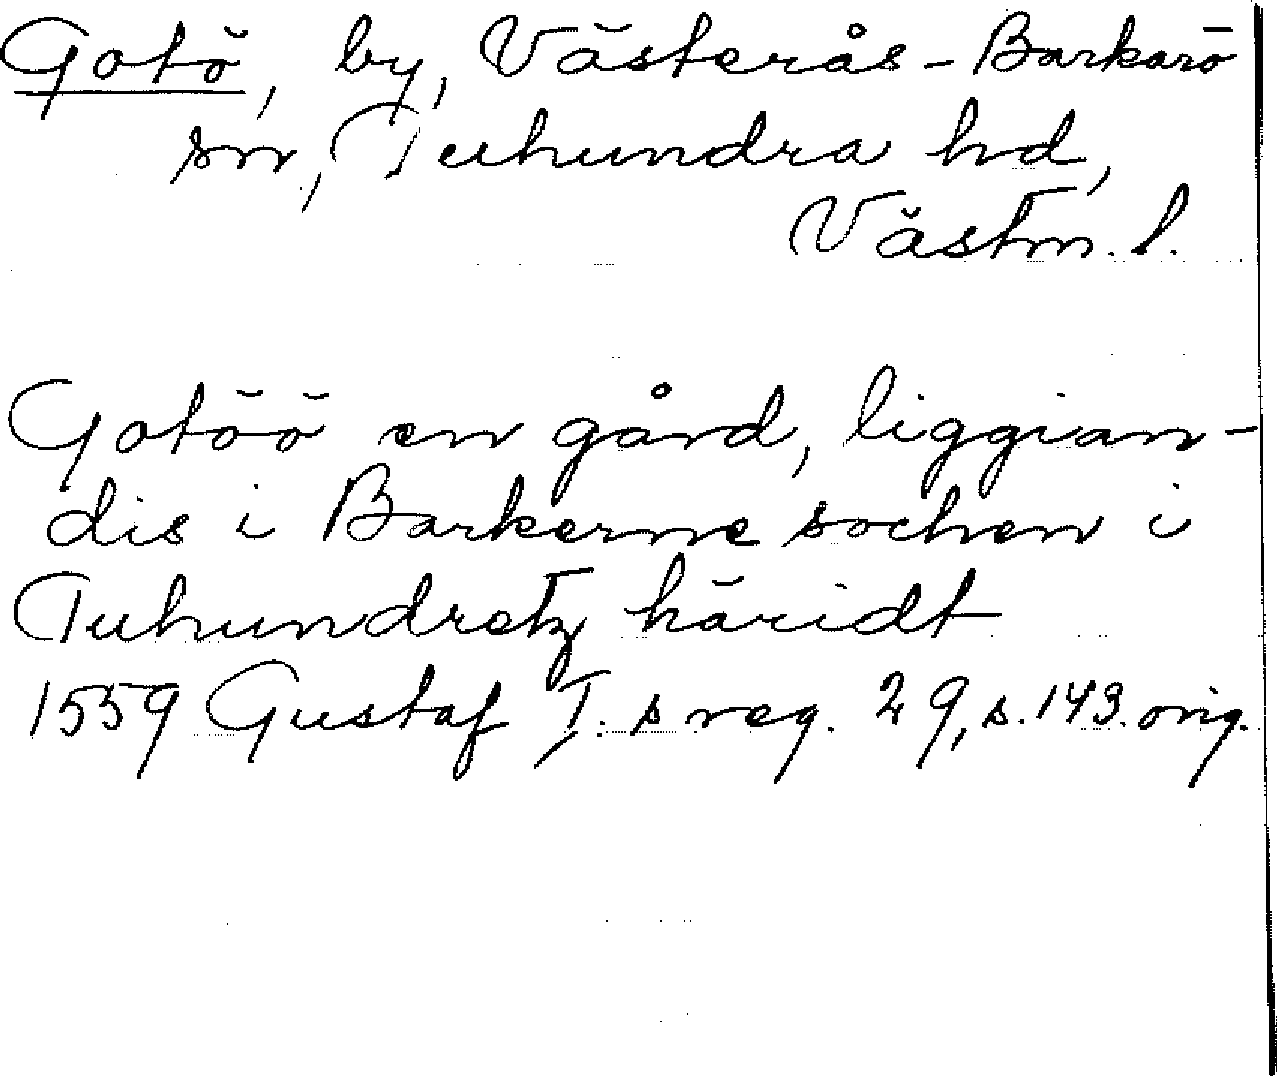 Gotö, by, Västerås-Barkarö
sn, Tuhundra hd,
Västm. l.
Gotöö en gård, liggian-
dis i Barkerne sochen i
Tuhundretz häridt
1559 Gustaf I:s reg. 29, s. 143. orig.